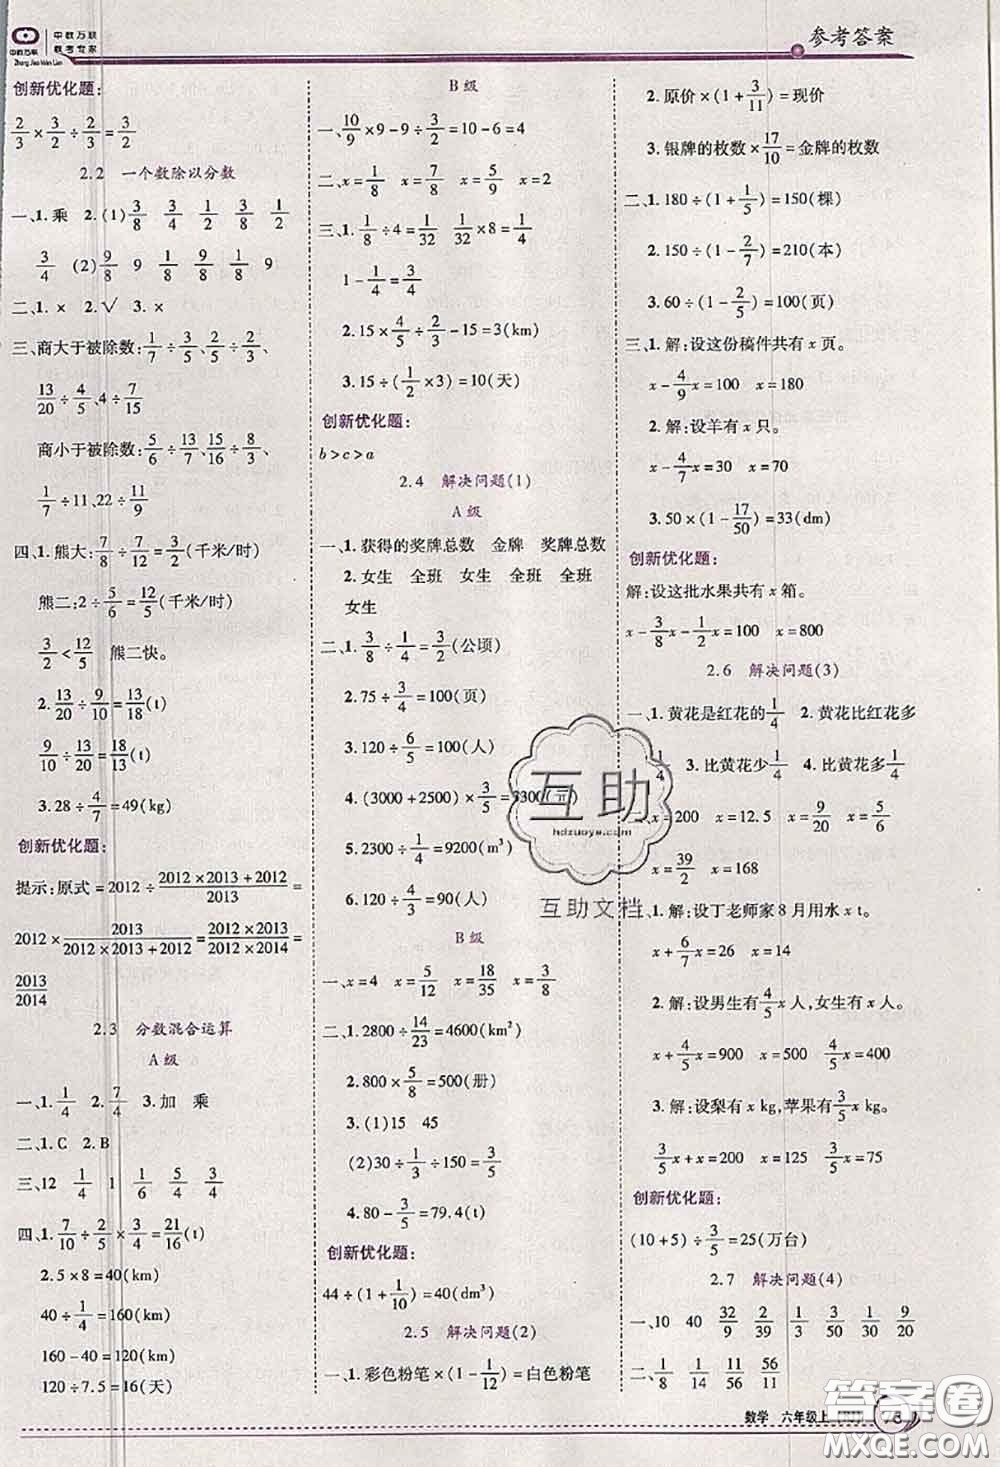 中教万联
联考专家
中教万联
Zhong Jiao Wan Lian
参考答案
创新优化题:
2/3×3/2÷2/3=3/2
2.2 一个数除以分数
一、1.乘 2.(1)3/8 3/4 1/2 3/8 1/2
3/4 (2)9/8 9 1/8 9/8 1/8 9
二、1.× 2.√ 3.×
三、商大于被除数:1/7÷3/5、2/5÷2/3、
13/20÷4/5、4÷7/15
商小于被除数:5/6÷13/7、15/16÷8/3、
1/7÷11、22÷11/9
四、1.熊大:7/8÷7/12=3/2(千米/时)
熊二:2÷5/6=12/5(千米/时)
3/2<12/5 熊二快。
2.13/20÷9/10=13/18(t)
9/10÷13/20=18/13(t)
3.28÷4/7=49(kg)
创新优化题:
提示:原式=2012÷(2012×2013+2012)/2013=
2012×2013/(2012×2013+2012)=(2012×2013)/(2012×2014)=
2013/2014
2.3 分数混合运算
A级
一、1.1/4 2.7/4 3.加 乘
二、1.C 2.B
三、12 1/4 1 1/6 5/4 3/4
四、1.7/10÷2/5×3/4=21/16(t)
2.5×8=40(km)
40÷1/4=160(km)
160-40=120(km)
120÷7.5=16(天)
B级
一、10/9×9-9÷3/2=10-6=4
二、x=1/8 x=7/8 x=5/9 x=2
三、1.1/8÷4=1/32 1/32×8=1/4
1-1/4=3/4
2.15×4/5÷2/3-15=3(km)
3.15÷(1/2×3)=10(天)
创新优化题:
b>c>a
2.4 解决问题(1)
A级
一、1.获得的奖牌总数 金牌 奖牌总数
2.女生 全班 女生 全班 全班
女生
二、1.3/8÷1/4=3/2(公顷)
2.75÷3/4=100(页)
3.120÷6/5=100(人)
4.(3000+2500)×3/5=3300(元)
5.2300÷1/4=9200(m³)
6.120÷4/3=90(人)
B级
一、x=4 x=5/12 x=18/35 x=3/8
二、1.2800÷14/23=4600(km²)
2.800×5/8=500(册)
3.(1)15 45
(2)30÷1/3÷150=3/5
4.80-3/5=79.4(t)
创新优化题:
44÷(1+1/10)=40(dm³)
2.5 解决问题(2)
一、1.彩色粉笔×(1-1/12)=白色粉笔
2.原价×(1+3/11)=现价
3.银牌的枚数×17/10=金牌的枚数
二、1.180÷(1+1/5)=150(棵)
2.150÷(1-2/7)=210(本)
3.60÷(1-2/5)=100(页)
三、1.解:设这份稿件共有x页。
x-4/9x=100 x=180
2.解:设羊有x只。
x-4/7x=30 x=70
3.50×(1-17/50)=33(dm)
创新优化题:
解:设这批水果共有x箱。
x-3/8x-1/2x=100 x=800
2.6 解决问题(3)
一、1.黄花是红花的1/4 2.黄花比红花多
1/4 3.比黄花少1/4 4.比黄花多1/4
x=200 x=12.5 x=9/20 x=5/6
x=39/2 x=168
1.解:设丁老师家8月用水x t。
x+6/7x=26 x=14
2.解:设男生有4/5x人,女生有x人。
x+4/5x=900 x=500 4/5x=400
3.解:设梨有x kg,苹果有3/5x kg。
3/5x+x=200 x=125 3/5x=75
创新优化题:
(10+5)÷3/5=25(万台)
2.7 解决问题(4)
一、10 40 32/9 2/39 1/3 3/50 9/20
二、1/8 1/14 11/56 56/11
数学 六年级上
互助
hdzuoye.com
互助文档
答案圈
MXQE.COM